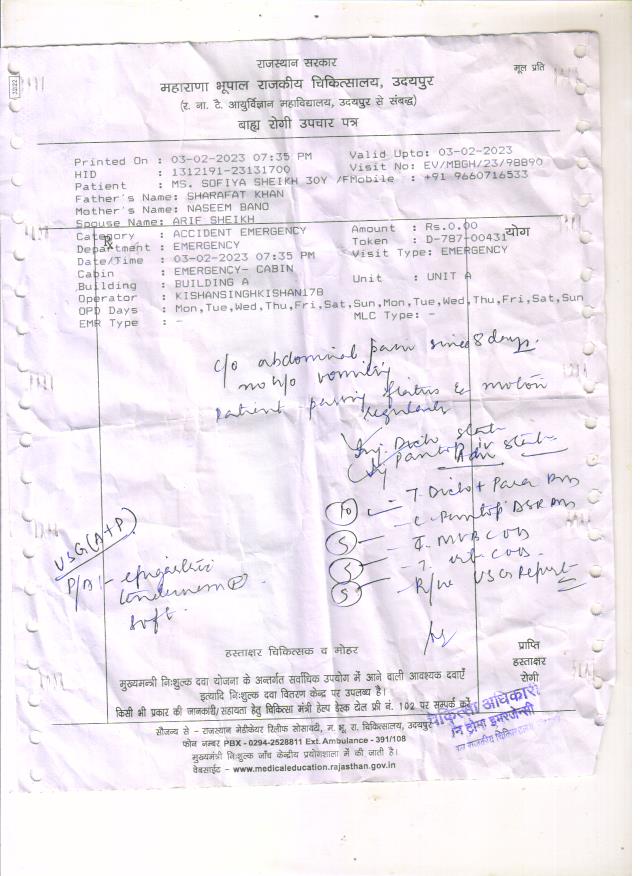 राजस्थान सरकार
मूल प्रति
महाराणा भूपाल राजकीय चिकित्सालय, उदयपुर
(र. ना. टै. आयुर्विज्ञान महाविद्यालय, उदयपुर से संबद्ध)
बाह्य रोगी उपचार पत्र
Printed On : 03-02-2023 07:35 PM Valid Upto: 03-02-2023
HID : 1312191-23131700 Visit No: EV/MBGH/23/98890
Patient : MS. SOFIYA SHEIKH 30Y /F Mobile : +91 9660716533
Father's Name: SHARAFAT KHAN
Mother's Name: NASEEM BANO
Spouse Name: ARIF SHEIKH
Category : ACCIDENT EMERGENCY Amount : Rs.0.00
योग
Department : EMERGENCY Token : D-787-00431
Date/Time : 03-02-2023 07:35 PM Visit Type: EMERGENCY
Cabin : EMERGENCY- CABIN
Building : BUILDING A Unit : UNIT A
Operator : KISHANSINGHKISHAN178
OPD Days : Mon,Tue,Wed,Thu,Fri,Sat,Sun,Mon,Tue,Wed,Thu,Fri,Sat,Sun
EMR Type : - MLC Type: -
c/o abdominal pain since 8 days.
no h/o vomiting
Patient passing flatus & motion
regularly
Inj. Diclo stat
Inj Pantop iv stat
Adv
10 T. Diclo + Para BD
5 C. Pantop DSR
5 T. MVBC OD
5
R/w USG Report
USG (A+P)
P/A:- epigastric
tenderness
Soft.
हस्ताक्षर चिकित्सक व मोहर
प्राप्ति
हस्ताक्षर
रोगी
मुख्यमन्त्री निःशुल्क दवा योजना के अन्तर्गत सर्वाधिक उपयोग में आने वाली आवश्यक दवाएँ
इत्यादि निःशुल्क दवा वितरण केन्द्र पर उपलब्ध है।
किसी भी प्रकार की जानकारी/सहायता हेतु चिकित्सा मंत्री हेल्प डेस्क टोल फ्री नं. 102 पर सम्पर्क करें
सौजन्य से - राजस्थान मेडीकेयर रिलीफ सोसायटी, म. भू. रा. चिकित्सालय, उदयपुर
फोन नम्बर PBX - 0294-2528811 Ext. Ambulance - 391/108
मुख्यमंत्री निःशुल्क जाँच केन्द्रीय प्रयोगशाला में की जाती है।
वेबसाईट - www.medicaleducation.rajasthan.gov.in
चिकित्सा अधिकारी
ट्रोमा इमरजेन्सी